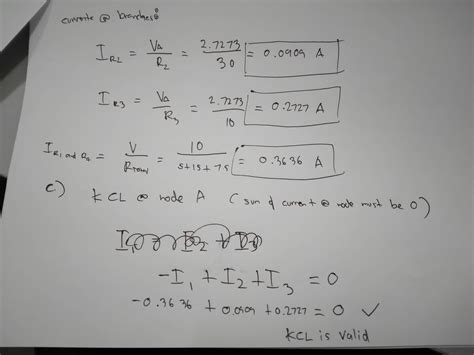 currents @ branches:
I_R2 = VA / R2 = 2.7273 / 30 = 0.0909 A
I_R3 = VA / R3 = 2.7273 / 10 = 0.2727 A
= V / = 10 / 5+15+7.5 = 0.3636 A
c) KCL @ node A ( sum of current @ node must be 0 )
-I1 + I2 + I3 = 0
-0.3636 + 0.0909 + 0.2727 = 0 ✓
KCL is valid